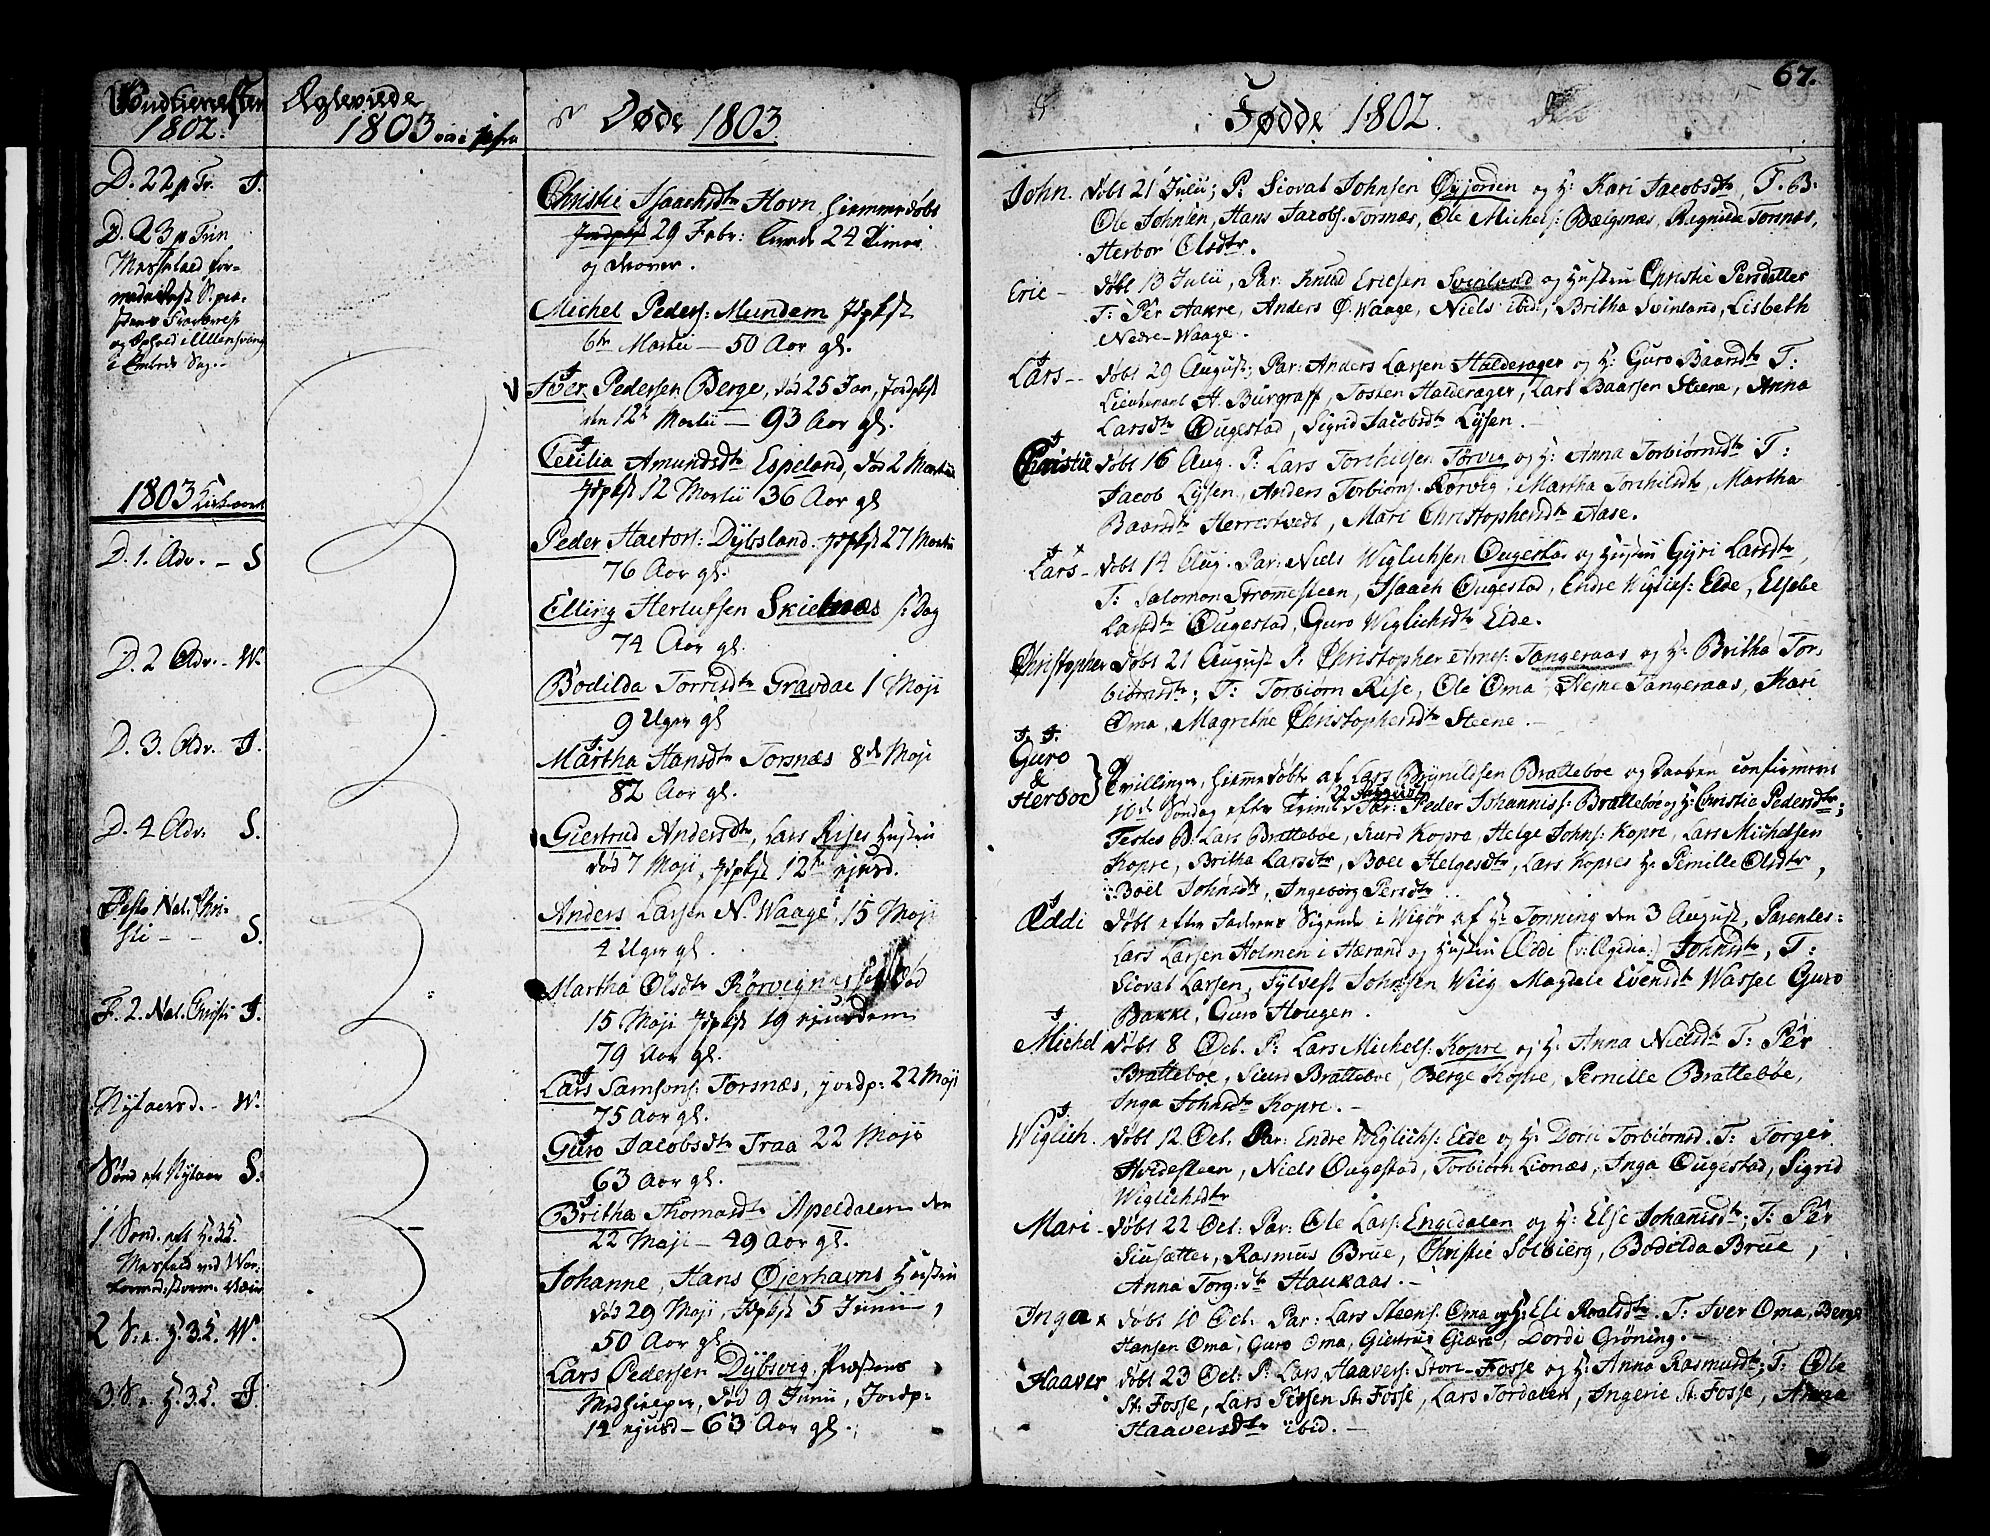 1802.
D. 22 p Tr. J.
D. 23 p Trin
1803
D. 1. Adv. - S
D. 2 Adv. - W.
D. 3. Adv. J.
D. 4 Adv. S.
Festo Nat. Chri-
sti - - S.
F. 2. Nat. Christi J.
Nytaarsd. - W.
Sønd eft Nytaar S.
1 Sønd. eft H.3K.
2 S. e. H.3K. W.
3 S. e. H.3K. J.
Ægteviede
1803
Døde 1803.
Christie Isaachsdtr Hovn hiemmedøbt
29 Febr: 24 Timer
og
Michel Peders: Mundem Jdpkst
6te Martii - 50 Aar gl.
Iver Pedersen Berge, død 25 Jan, Jordpkst
den 12te Martii - 93 Aar gl.
Cecilia Amundsdtr Espeland, død 2 Martii
Jdpkst 12 Martii 36 Aar gl
Peder Hactors: Dybsland. Jdpkst 27 Martii
76 Aar gl.
Elling Herlufsen Skielnæs s: Dag
74 Aar gl.
Bodilda Torrisdtr Gravdae 1 Maji
9 Uger gl
Martha Hansdtr Torsnæs 8de Maji
82 Aar gl.
Giertrud Andersdtr, Lars Rises Hustru
død 7 Maji, Jdpkst 12te ejusd.
Anders Larsen N. Waage, 15 Maji
4 Uger gl.
Martha Olsdtr Rørvignæsset død
15 Maji Jdpkst 19 ejusdem
79 Aar gl.
Lars Samsons: Torsnæs, jordp: 22 Maji
75 Aar gl.
Guro Jacobsdtr Traa 22 Maji
63 Aar gl.
Britha Thomasdtr Apeldalen den
22 Maji - 49 Aar gl.
Johanne, Hans Øjerhavns Hustru
død 29 Maji, Jdpkst 5 Junii,
50 Aar gl.
Lars Pedersen Dybsvig, Præstens
Medhielper, død 9 Junii, Jordp:
14 ejusd - 63 Aar gl.
67.
Fødde 1802.
John. døbt 21 Julii; P: Siovat Johnsen Øyjorden og H: Kari Jacobsdtr, T. B:
Ole Johnsen, Hans Jacobs: Torsnæs, Ole Michels: Bælgsnæs, Ragnilde Torsnæs,
Herbor Olsdtr.
Eric - døbt 13 Julii, Par. Knud Ericsen Svinland og Hustru Christie Persdatter
T: Per Aakre, Anders Ø. Waage, Niels ibid: Britha Svinland, Lisbeth
Nedre-Waage.
Lars - døbt 29 August; Par: Anders Larsen Halderager og H: Guro Baarsdtr T:
Lieutenant H. Burgraff, Tosten Halderager, Lars Baarsen Steene, Anna
Larsdtr Øugestad, Sigrid Jacobsdtr Lysen.
Christie døbt 16 Aug. P: Lars Torchilsen Tørvig og H: Anna Torbiørnsdtr T:
Jacob Lysen, Anders Torbiørns: Rørvig, Martha Torchilsdtr, Martha
Baarsdtr Herrestvedt, Mari Christophersdtr Aase.
Lars - døbt 14 Aug. Par: Niels Wiglichsen Øugestad og Hustru Gyri Larsdtr
T: Salomon Strømesteen, Isaach Øugestad, Endre Wiglics: Eide, Elsebe
Larsdtr Øugestad, Guro Wiglichsdtr Eide.
Christopher døbt 21 August P. Christopher Arnes: Tangeraas og H: Britha Tor-
biørnsdtr; T: Torbiørn Rise, Ole Oma, Stejne Tangeraas, Kari
Oma, Magrethe Christophersdtr Steene.
Guro
&
Herboe
Tvillinger, hiemmedøbte af Lars Brynildsen Bratteboe og Daaben confirmeret
10de Søndag efter Trinit: 22 August Par: Peder Johanniss: Bratteboe og H: Christie Pedersdtr;
Testes B: Lars Bratteboe, Siurd Kopre, Helge Johns: Kopre, Lars Michelsen
Kopre, Britha Larsdtr, Boel Helgesdtr, Lars Kopres H: Pernille Olsdtr,
Boël Johnsdtr, Ingeborg Persdtr
Æddi døbt efter Faderens Sigende i Wigør af Hr Tonning den 3 August, Parentes:
Lars Larsen Holmen i Hærand og Hustru Ædde (v: Ægidia:) Johnsdtr, T:
Siovat Larsen, Sylvest Johnsen Wiig Magdele Evensdtr Wassel Guro
Bakke, Guro Hougen.
Michel døbt 8 Oct. P: Lars Michels: Kopre og H: Anna Nielsdtr T: Per
Bratteboe, Siurd Bratteboe, Berge Kopre, Pernille Bratteboe,
Inga Johnsdtr Kopre. -
Wiglich. døbt 12 Oct. Par: Endre Wiglichs: Eide og H: Dorti Torbiørnsd. T: Torger
Hvidesteen, Niels Øugestad, Torbiørn Lionæs, Inga Øugestad, Sigrid
Wiglichsdtr
Mari - døbt 22 Oct: Par: Ole Lars: Engedalen og H: Else Johanisdtr; T: Per
Siusætter, Rasmus Brue, Christie Solbierg, Bodilda Brue,
Anna Torg:dtr Haukaas. -
Inga døbt 10 Oct. Par: Lars Steens: Oma og H: Eli Roalsdtr. T: Iver Oma, Berge
Hansen Oma, Guro Oma, Giertrug Giære, Dordi Grøning. -
Haaver døbt 23 Oct: P. Lars Haavers: Stor-Fosse og H: Anna Rasmusdtr; T: Ole
St: Fosse, Lars Persen St: Fosse, Lars Tordalen, Ingerie St: Fosse, Anna
Haaversdtr ibid. -